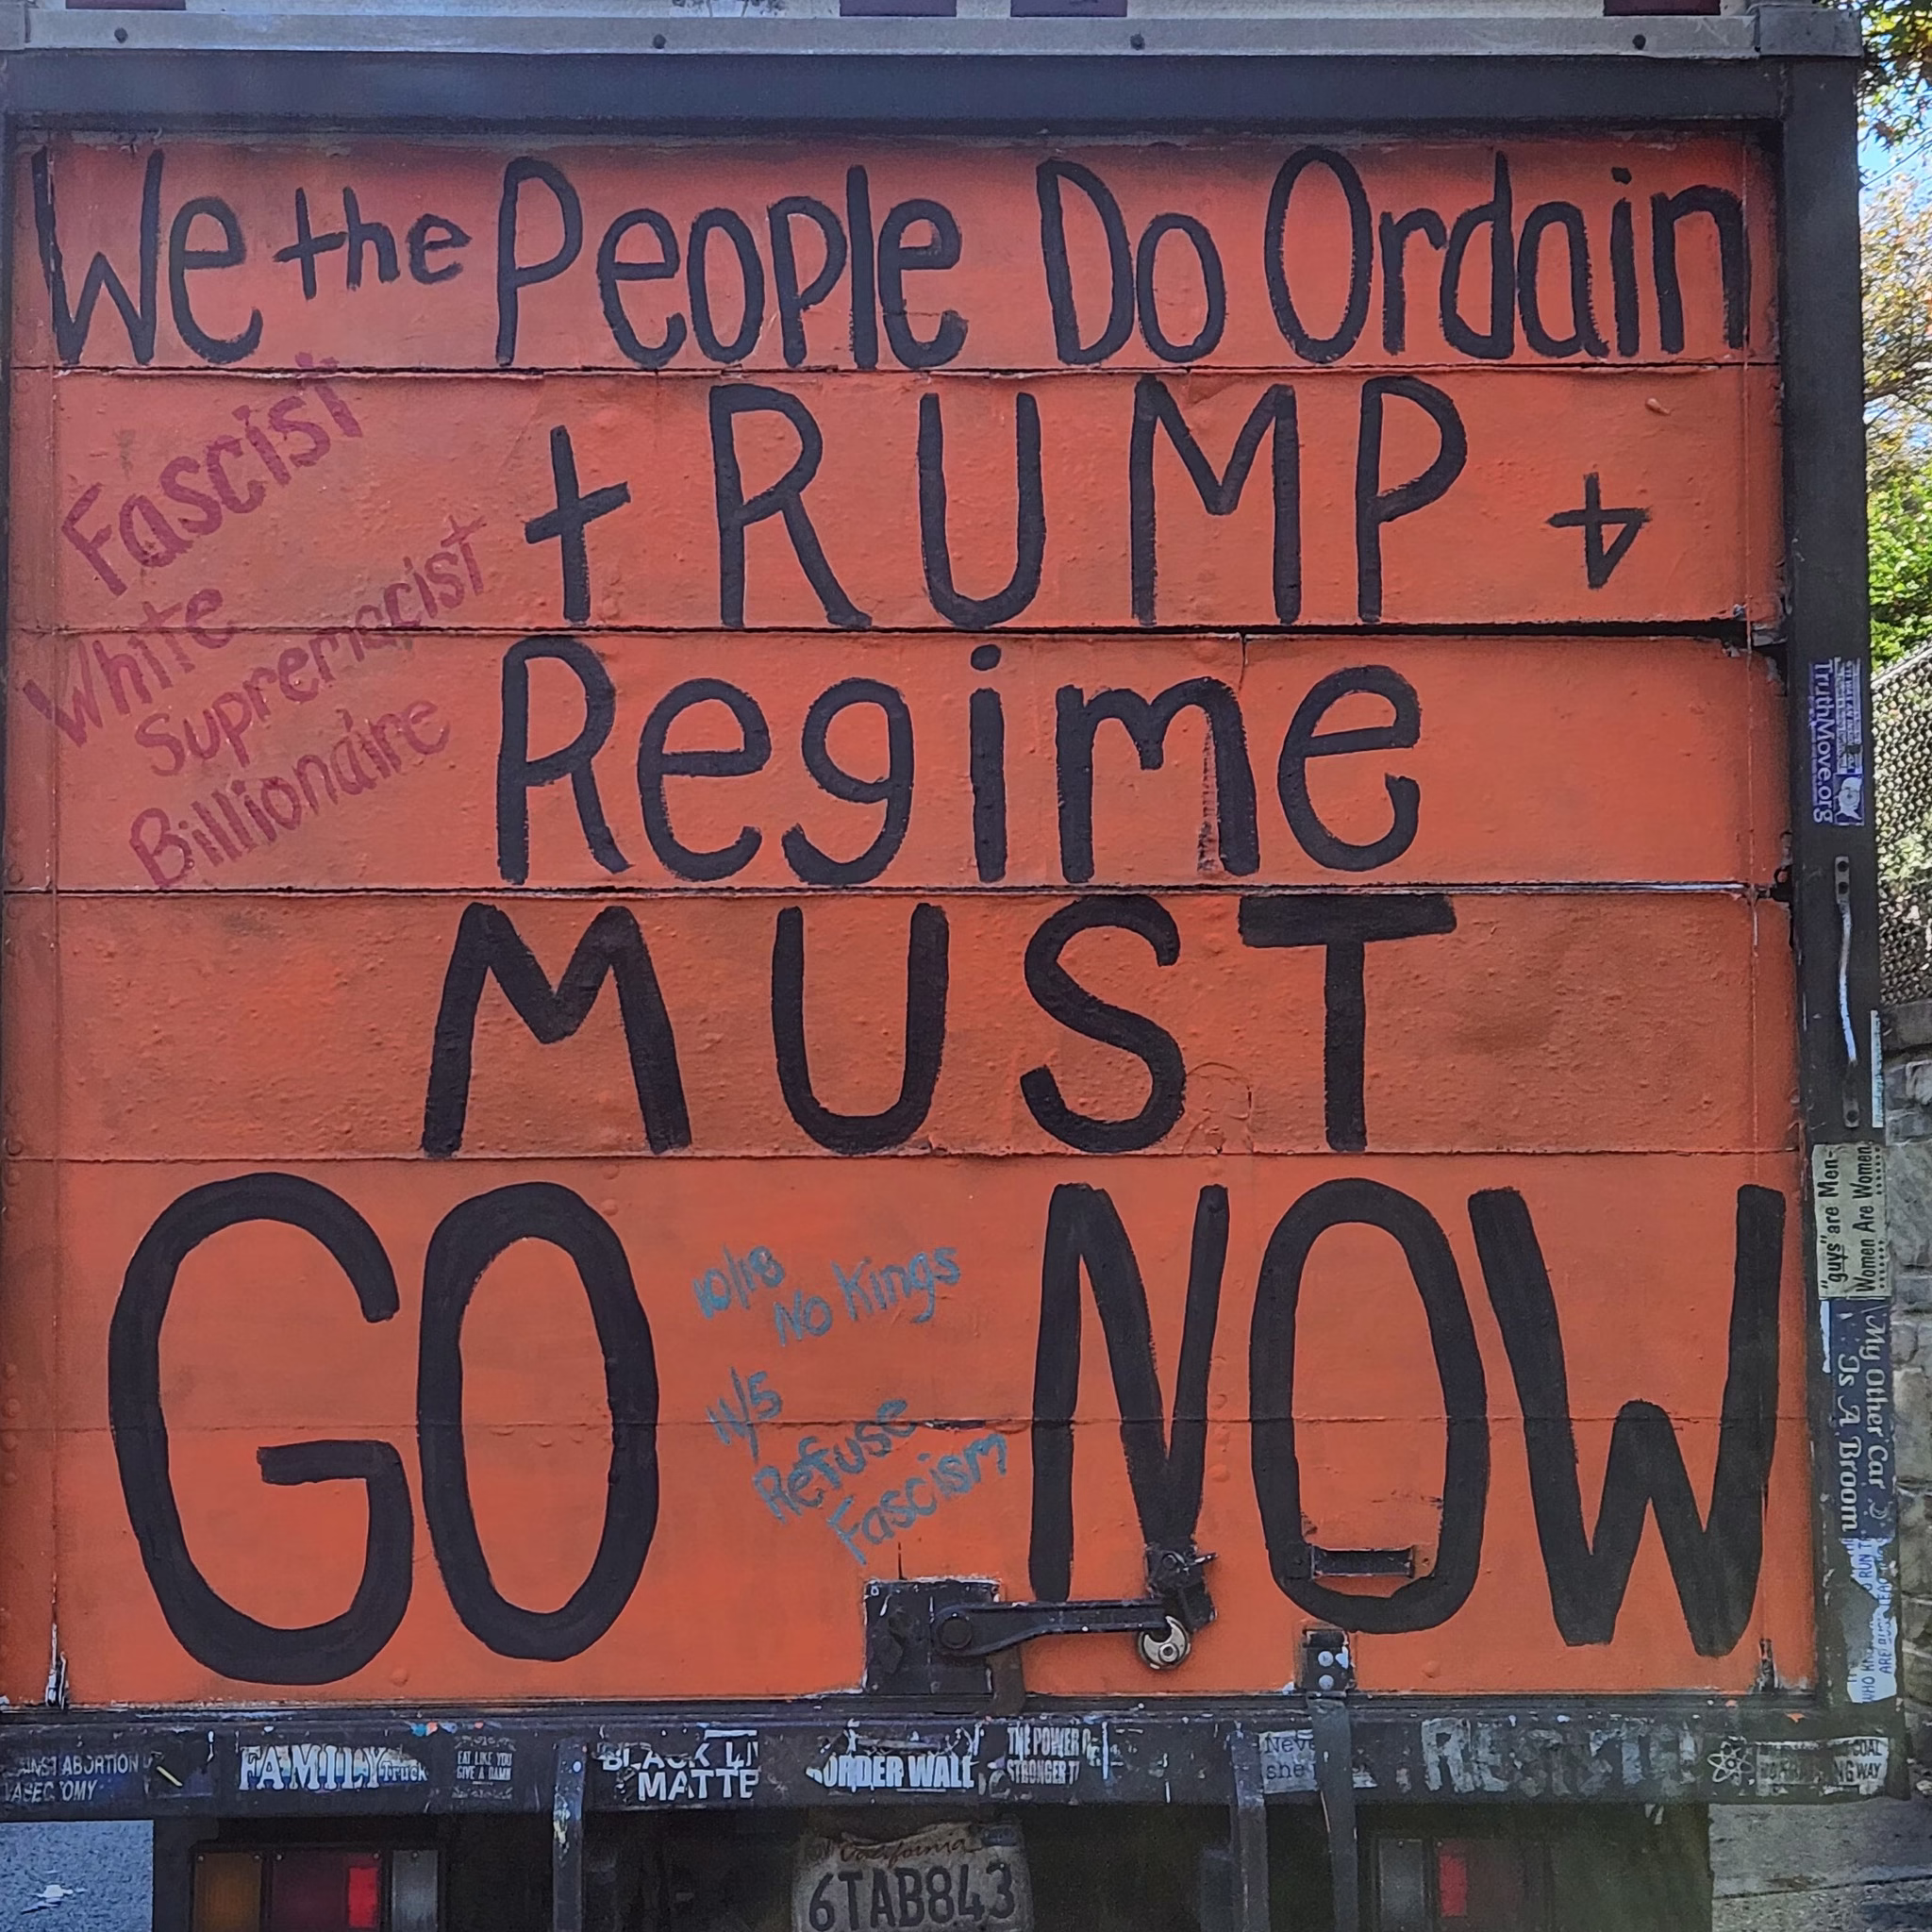 We the People Do Ordain
tRUMP
Regime
MUST
GO NOW
Fascist
White
Supremacist
Billionaire
10/18
No Kings
11/5
Refuse
Fascism
TruthMove.org
"guys" are Men-
Women Are Women
My Other Car
Is A Broom
ABORTION
FAMILY Truck
EAT LIKE YOU
GIVE A DAMN
BLACK LI
MATTE
ORDER WALL
THE POWER
STRONGER T
Neve
she
RESIST
California
6TAB843